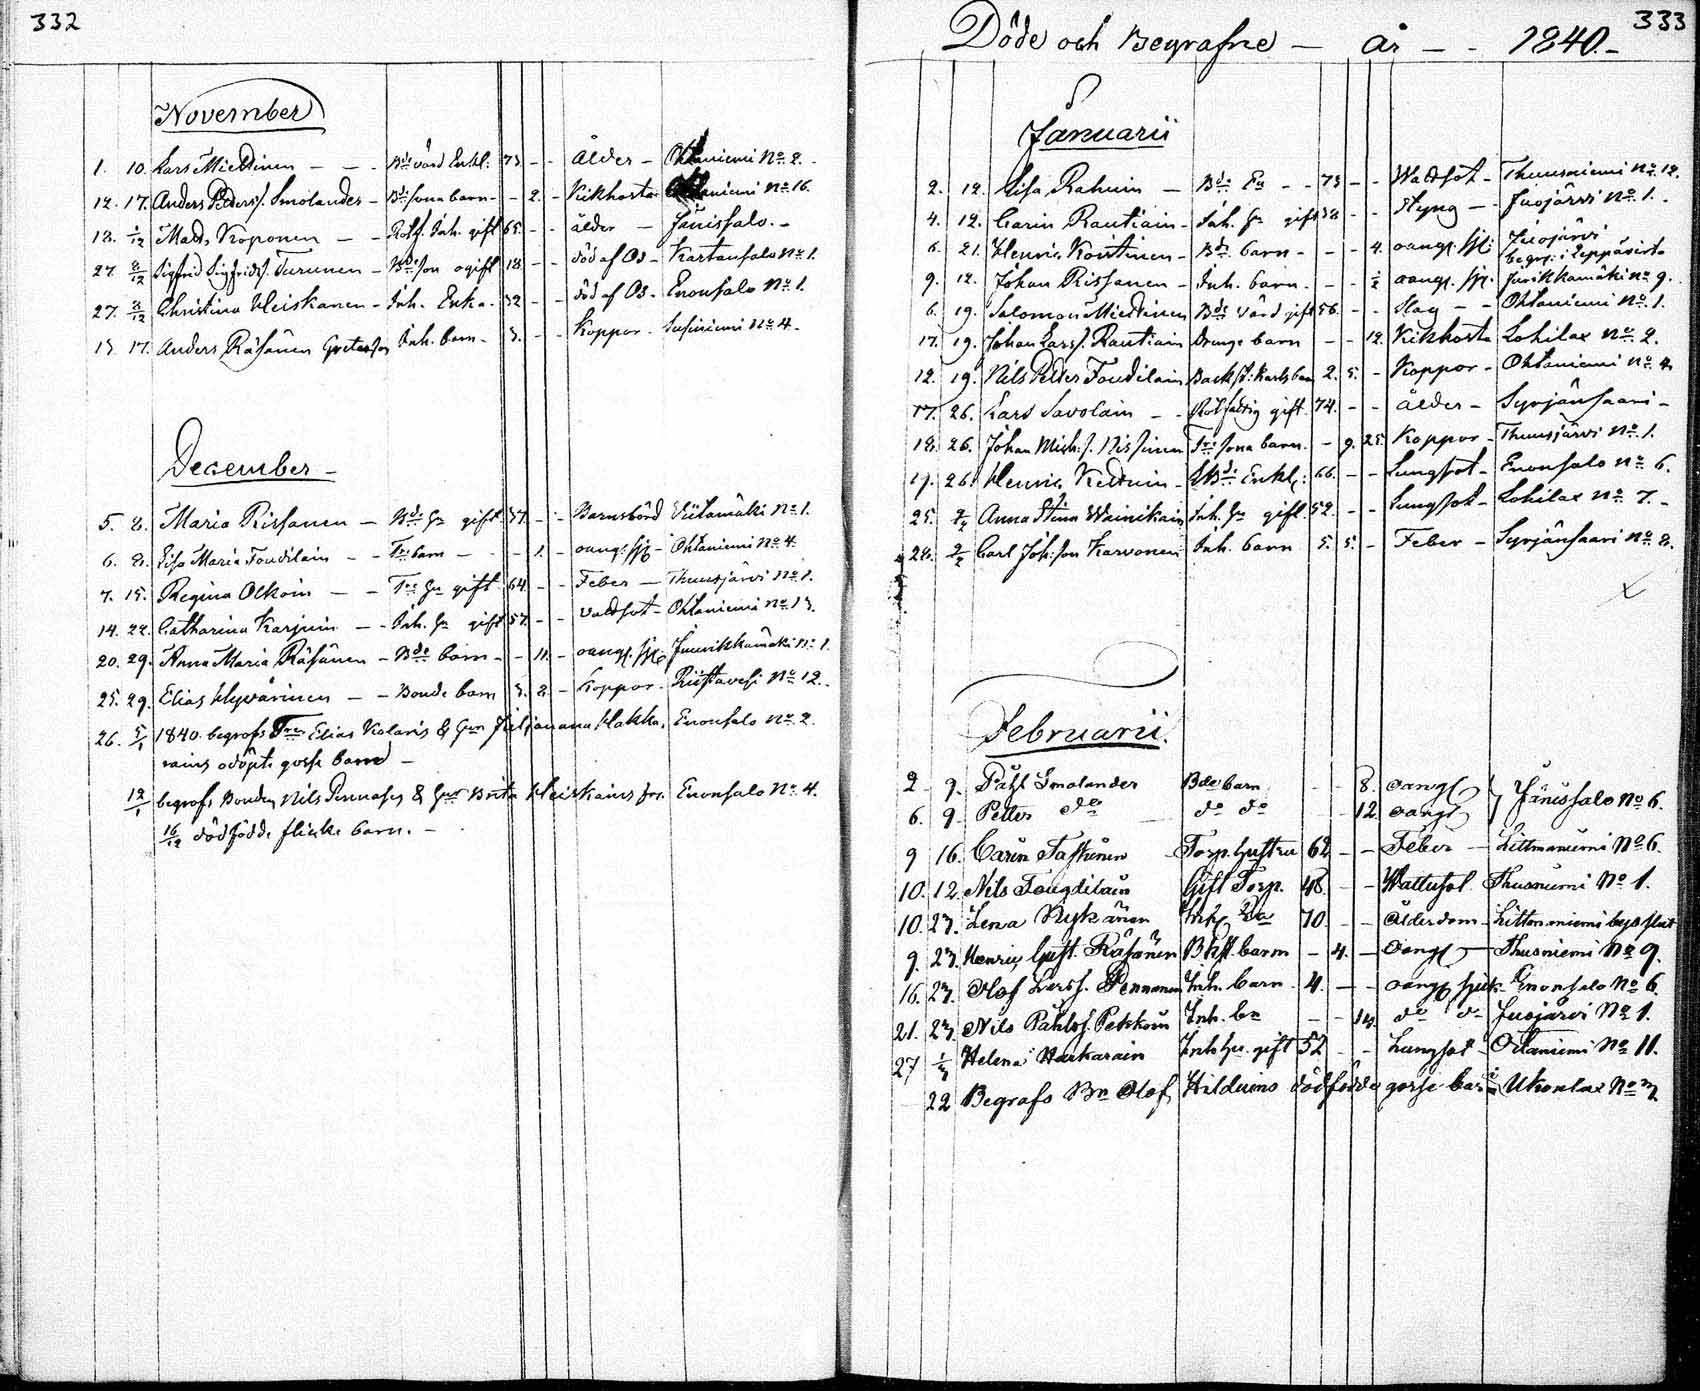 332
November
1. 10. Lars Miettinen – – Bde värd Enkl. 73. – – Ålder – Ohtaniemi No 2.
12. 17. Anders Petters. Smolander – Bde sona barn – – 2. – Kikhosta – No 16.
18. 1/12 Mats Koponen – – Rotf. Inh. gift 65. – – ålder – Jänissalo. –
27. 8/12 Sigfrid Sigfrids. Turunen – Bde son ogift 18 – – död af Os – Kartansalo No 1.
27. 8/12 Christina Heiskanen – Inh. Enka. 32 – – död af Os – Enonsalo No 1.
13. 17. Anders Räsänen Greteson Inh. barn – 3. – – Koppor – Susiniemi No 4.
December –
5. 8. Maria Rissanen – Bde Hu gift 37. – – Barnsbörd Viitamäki No 1.
6. 8. Lisa Maria Foudilain – Tr: barn – – 1. – oang: sjk – Ohtaniemi No 4.
7. 15. Regina Olkoin – – Tr: Hu gift 64. – – Feber – Thuusjärvi No 1.
14. 22. Catharina Karjuin – – Inh. Hu gift 57. – – vattsot – Ohtaniemi No 13.
20. 29. Anna Maria Räsänen – Bde barn – – 11. – oang. sjk. Juurikkamäki No 1.
25. 29. Elias Hyvärinen – – Bonde barn 3. 8. – Koppor – Riistavesi No 12.
26. 5/1 1840. begrofs Tren Elias Kolaris & Hun Juljanana Hakka- Enonsalo No 2.
rains odöpte gosse barn –
12/1 begrofs Bonden Nils Pennases & Hus Brita Heiskains fr. Enonsalo No 4.
16/12 dödfödde flicke barn. –
333
Döde och Begrafne – år – – 1840. –
Januarii
2. 12. Lisa Rahuin – Bde Ea – – 73 – – Wattsot – Thuusniemi No 12.
4. 12. Carin Rautiain – Inh. Hu gift 38 – – Styng – Juojärvi No 1.
6. 21. Henric Kontinen – Bde barn – – – 4. oang. sjk: Juojärvi
begr: i Leppävirta
9. 12. Johan Rissanen – Inh. barn. – – 1/2 oang. sjk. Jurikkamäki No 9.
6. 19. Salomon Miettinen Bde värd gift 56. – – Slag – – Ohtaniemi No 1.
17. 19. Johan Larss. Rautiain Drenge barn – – 12. Kikhosta Lohilax No 2.
12. 19. Nils Petter Foudilain Backst: Karls barn 2. 5. – Koppor – Ohtaniemi No 4.
17. 26. Lars Savolain – – Rotfattig gift 74. – – ålder – Syrjänsaari –
18. 26. Johan Mich: s. Rissanen Tr: sona barn. – 9. 25. Koppor – Thuusjärvi No 1.
19. 26. Henric Kettuin – Bde Enkl: 66. – – Lungsot – Enonsalo No 6.
25. 2/2 Anna Stina Wainikain Inh. Hu gift. 52. – – Lungsot – Lohilax No 7. –
28. 2/2 Carl Joh: son Karvonen Inh. barn 5. 5. – Feber – Syrjänsaari No 8.
Februarii.
2 9. Påhl Smolander Bde barn – – 8. oangf } Jänissalo No 6.
6. 9. Petter do do do – – 12 oangf
9 16. Carin Taskinen Torp. hustru 62 – – Feber – Littmaniemi No 6.
10. 12 Nils Fougdilain Gift Torp. 48 – – Wattusot. Thusniemi No 1.
10. 23. Lena Nykänen Inh. Ea 70 – – Ålderdom – Littmaniemi
9. 23. Henric Gust. Räsänen Bkst. barn – 4. – oangf – Thusniemi No 9.
16. 23. Olof Larss. Pennanen Inh. barn 4. – – oangf sjuk Enonsalo No 6.
21. 23. Nils Påhls. Petskoin Inh. bn – – 14. do do Juojärvi No 1.
27 1/3 Helena Harkarain Inh Hu. gift 52 – – Lungsot – Ottaniemi No 11.
22 Begrafs Bn Olof Hilduins dödfödda gosse barn i Ukonlax No 3